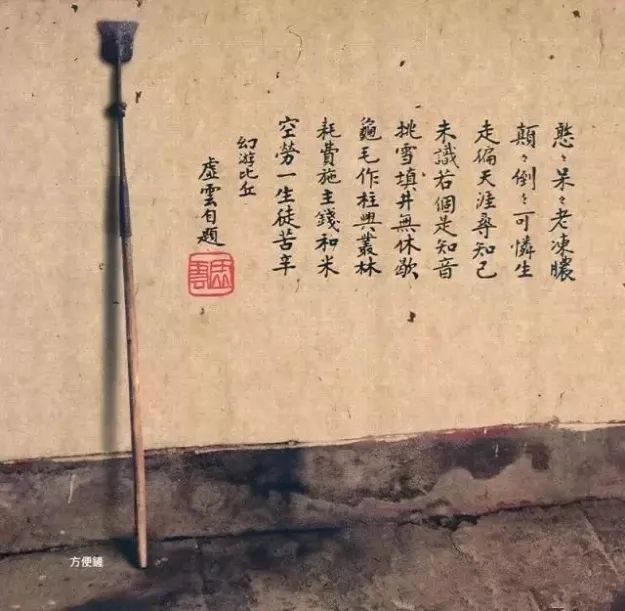 憨々呆々老凍膿
顛々倒々可憐生
走徧天涯尋知己
未識若個是知音
挑雪填井無休歇
龜毛作柱興叢林
耗費施主錢和米
空勞一生徒苦辛
幻游比丘
虛雲自題
虛雲
方便鏟